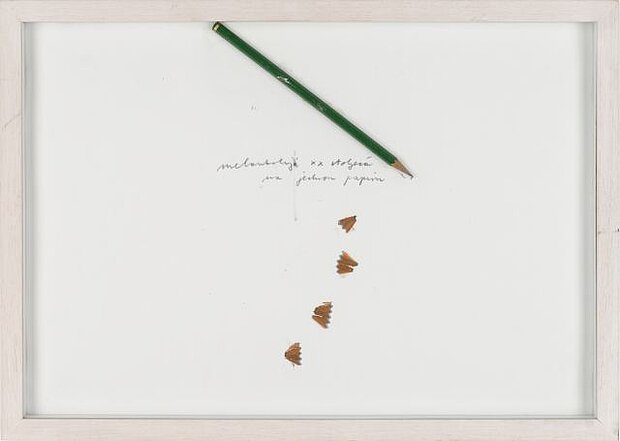 melankolija xx stoljeća
na jednom papiru